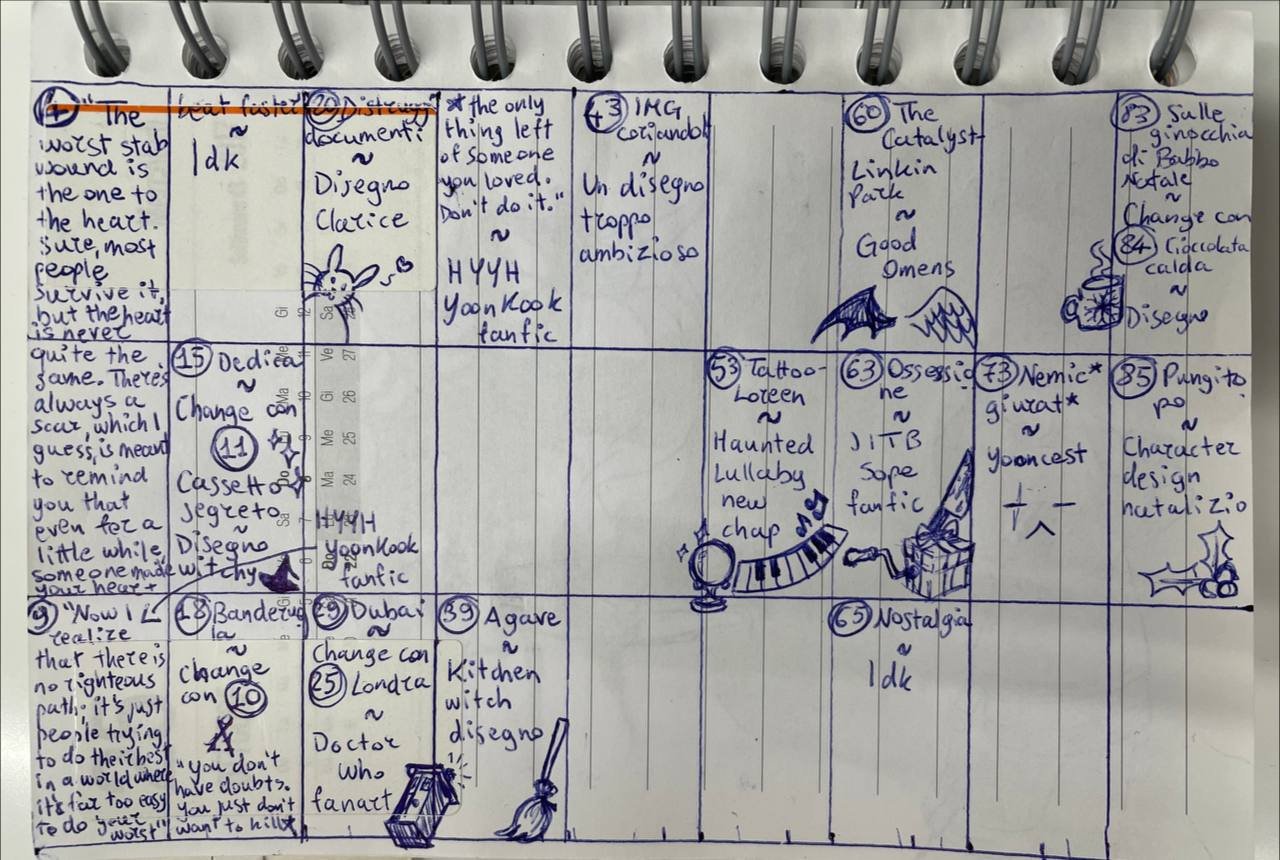 4 "The
worst stab
wound is
the one to
the heart.
Sure, most
people
survive it,
but the heart
is never
quite the
same. There's
always a
scar, which I
guess, is meant
to remind
you that
even for a
little while,
someone made
your heart
beat faster"
~
Idk
20 Distruggi
documenti
~
Disegno
Clarice
* the only
thing left
of someone
you loved.
Don't do it."
~
HYYH
YoonKook
fanfic
43 IMG
coriandoli
~
Un disegno
troppo
ambizioso
60 The
Catalyst-
Linkin
Park
~
Good
Omens
83 Sulle
ginocchia
di Babbo
Natale
~
Change con
84 Cioccolata
calda
~
Disegno
15 Dedica
~
Change con
11
Cassetto
segreto
~
Disegno
witchy
HYYH
YoonKook
fanfic
53 Tattoo-
Loreen
~
Haunted
Lullaby
new
chap
63 Ossessio
ne
~
JITB
Sope
fanfic
73 Nemic*
giurat*
~
Yooncest
85 Pungito
po
~
Character
design
natalizio
9 "Now I
realize
that there is
no righteous
path. it's just
people trying
to do their best
in a world where
it's far too easy
to do your
worst"
18 Banderuo
la
~
Change
con 10
"you don't
have doubts.
you just don't
want to kill*
29 Dubai
~
Change con
25 Londra
~
Doctor
Who
fanart
39 Agave
~
Kitchen
witch
disegno
65 Nostalgia
~
Idk
Gi 12
Me 11
Ma 10
9
Sa 7
Ve 27
Gi 26
Me 25
Ma 24
22